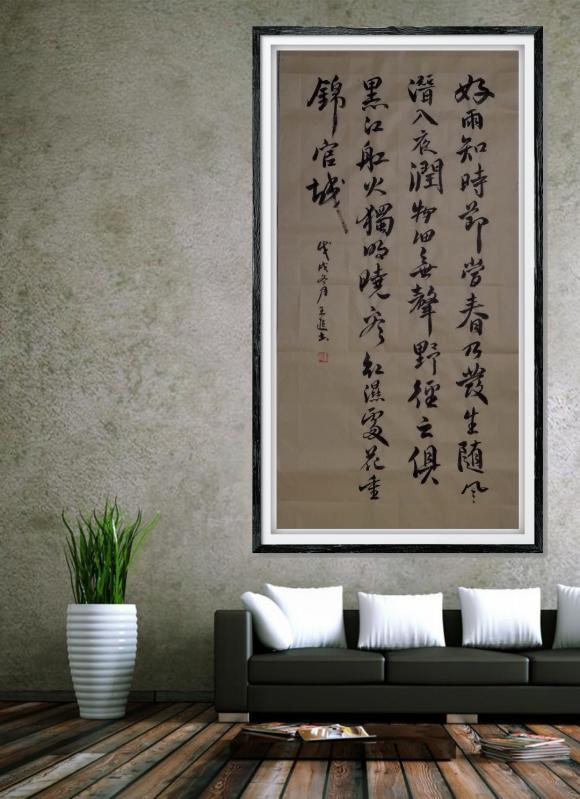 好雨知時節當春乃發生随风
潛入夜潤物细無聲野徑云俱
黑江船火獨明曉看紅濕處花重
錦官城
戊戌冬月王進书